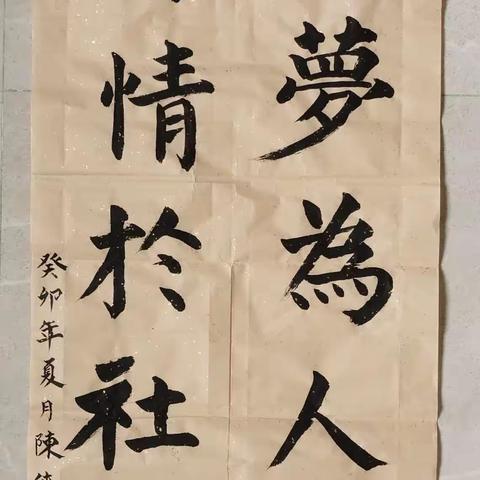 夢為人
情於社
癸卯年夏月陳